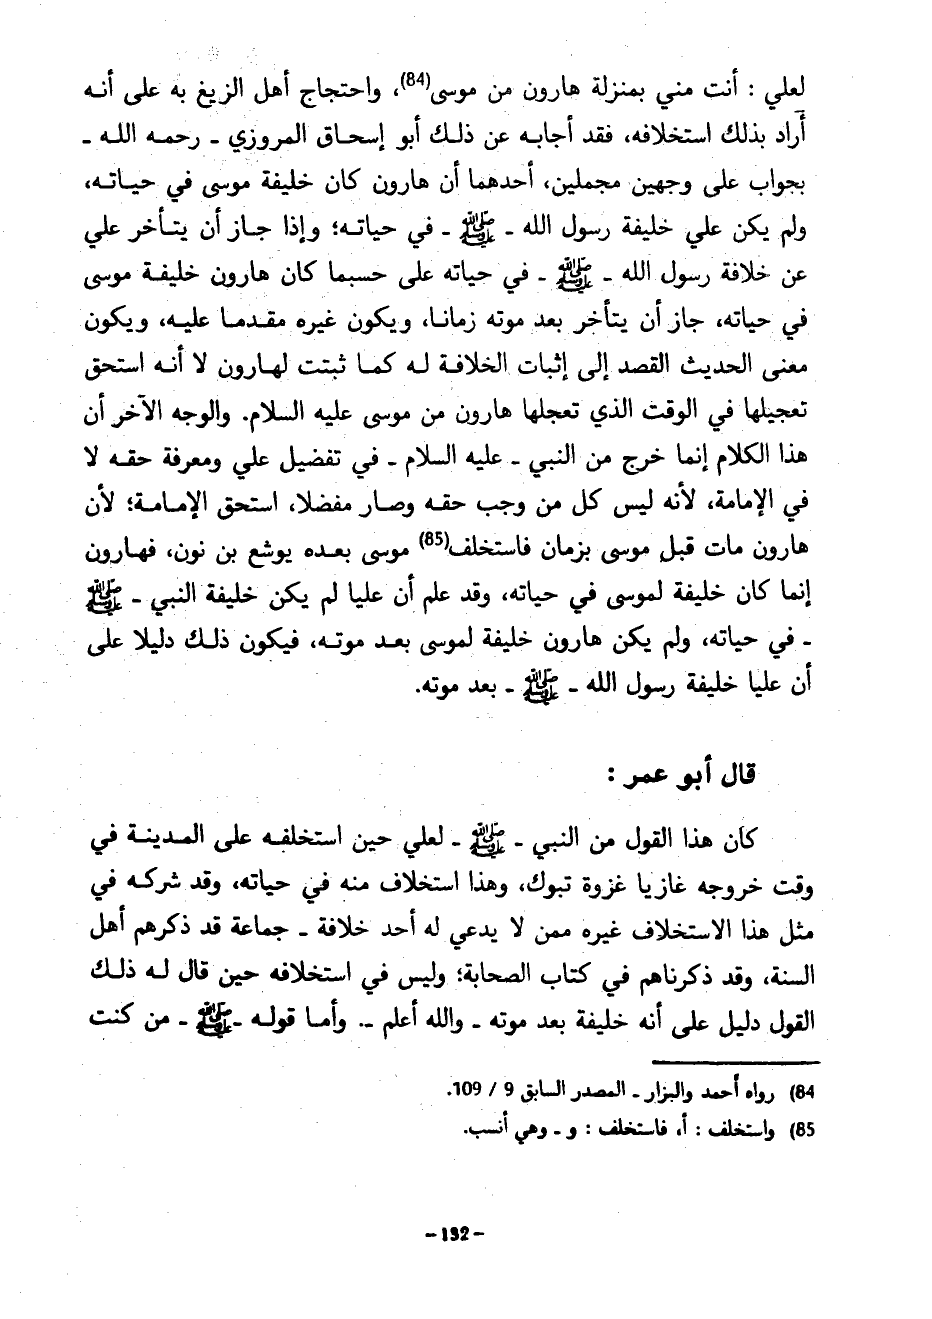 لعلي : أنت مني بمنزلة هارون من موسى(84)، واحتجاج أهل الزيغ به على أنه
أراد بذلك استخلافه، فقد أجابه عن ذلك أبو إسحاق المروزي ـ رحمه الله ـ
بجواب على وجهين مجملين، أحدهما أن هارون كان خليفة موسى في حياته،
ولم يكن علي خليفة رسول الله ـ ﷺ ـ في حياته؛ وإذا جاز أن يتأخر علي
عن خلافة رسول الله ـ ﷺ ـ في حياته على حسبما كان هارون خليفة موسى
في حياته، جاز أن يتأخر بعد موته زمانا، ويكون غيره مقدما عليه، ويكون
معنى الحديث القصد إلى إثبات الخلافة له كما ثبتت لهارون لا أنه استحق
تعجيلها في الوقت الذي تعجلها هارون من موسى عليه السلام. والوجه الآخر أن
هذا الكلام إنما خرج من النبي ـ عليه السلام ـ في تفضيل علي ومعرفة حقه لا
في الإمامة، لأنه ليس كل من وجب حقه وصار مفضلا، استحق الإمامة؛ لأن
هارون مات قبل موسى بزمان فاستخلف(85) موسى بعده يوشع بن نون، فهارون
إنما كان خليفة لموسى في حياته، وقد علم أن عليا لم يكن خليفة النبي ـ ﷺ
ـ في حياته، ولم يكن هارون خليفة لموسى بعد موته، فيكون ذلك دليلا على
أن عليا خليفة رسول الله ـ ﷺ ـ بعد موته.
قال أبو عمر :
كان هذا القول من النبي ـ ﷺ ـ لعلي حين استخلفه على المدينة في
وقت خروجه غازيا غزوة تبوك، وهذا استخلاف منه في حياته، وقد شركه في
مثل هذا الاستخلاف غيره ممن لا يدعي له أحد خلافة ـ جماعة قد ذكرهم أهل
السنة، وقد ذكرناهم في كتاب الصحابة؛ وليس في استخلافه حين قال له ذلك
القول دليل على أنه خليفة بعد موته ـ والله أعلم ـ. وأما قوله ـ ﷺ ـ من كنت
84) رواه أحمد والبزار ـ المصدر السابق 9 / 109.
85) واستخلف : أ، فاستخلف : و ـ وهي أنسب.
- 132 -